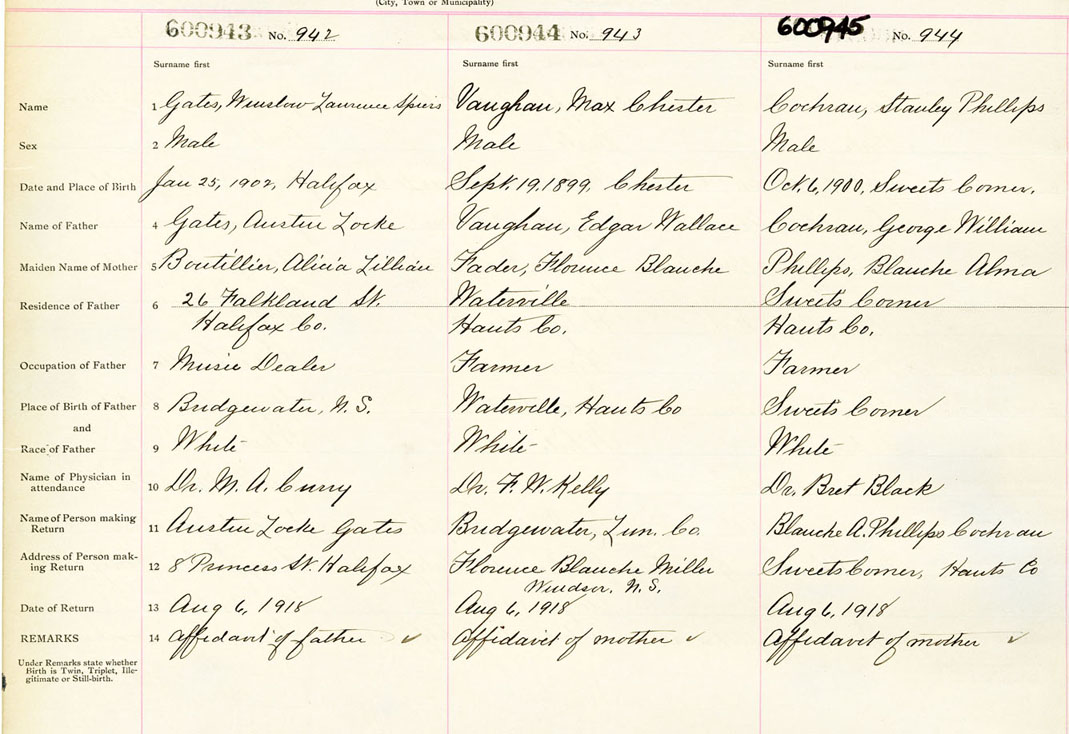 (City, Town or Municipality)
600943 No. 942 600944 No. 943 600945 No. 944
Surname first Surname first Surname first
Name 1 Gates, Winslow Laurence Spiers Vaughan, Max Chester Cochran, Stanley Phillips
Sex 2 Male Male Male
Date and Place of Birth Jan 25, 1902, Halifax Sept. 19, 1899, Chester Oct. 6, 1900, Sweets Corner.
Name of Father 4 Gates, Austin Locke Vaughan, Edgar Wallace Cochran, George William
Maiden Name of Mother 5 Boutillier, Alicia Lillian Fader, Florence Blanche Phillips, Blanche Alma
Residence of Father 6 26 Falkland St. Waterville Sweets Corner
Halifax Co. Hants Co. Hants Co.
Occupation of Father 7 Music Dealer Farmer Farmer
Place of Birth of Father 8 Bridgewater, N.S. Waterville, Hants Co Sweets Corner
and
Race of Father 9 White White White
Name of Physician in
attendance 10 Dr. M. A. Curry Dr. F. W. Kelly Dr. Bret Black
Name of Person making
Return 11 Austin Locke Gates Bridgewater, Lun. Co. Blanche A. Phillips Cochran
Address of Person mak-
ing Return 12 8 Princess St. Halifax Florence Blanche Miller Sweets Corner, Hants Co
Windsor, N.S.
Date of Return 13 Aug 6, 1918 Aug 6, 1918 Aug 6, 1918
REMARKS 14 Affidavit of father ✓ Affidavit of mother ✓ Affidavit of mother ✓
Under Remarks state whether
Birth is Twin, Triplet, Ille-
gitimate or Still-birth.